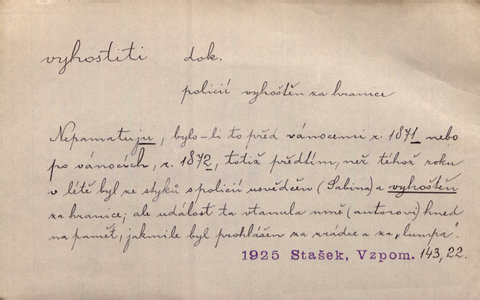 vyhostiti dok.
policií vyhoštěn za hranice
Nepamatuju, bylo-li to před vánocemi r. 1871 nebo
po vánocích, r. 1872, totiž předtím, než téhož roku
v létě byl ze styků s policií usvědčen (Sabina) a vyhoštěn
za hranice; ale událost ta vtanula mně (autorovi) hned
na paměť, jakmile byl prohlášen za zrádce a za „lumpa“.
1925 Stašek, Vzpom. 143,22.